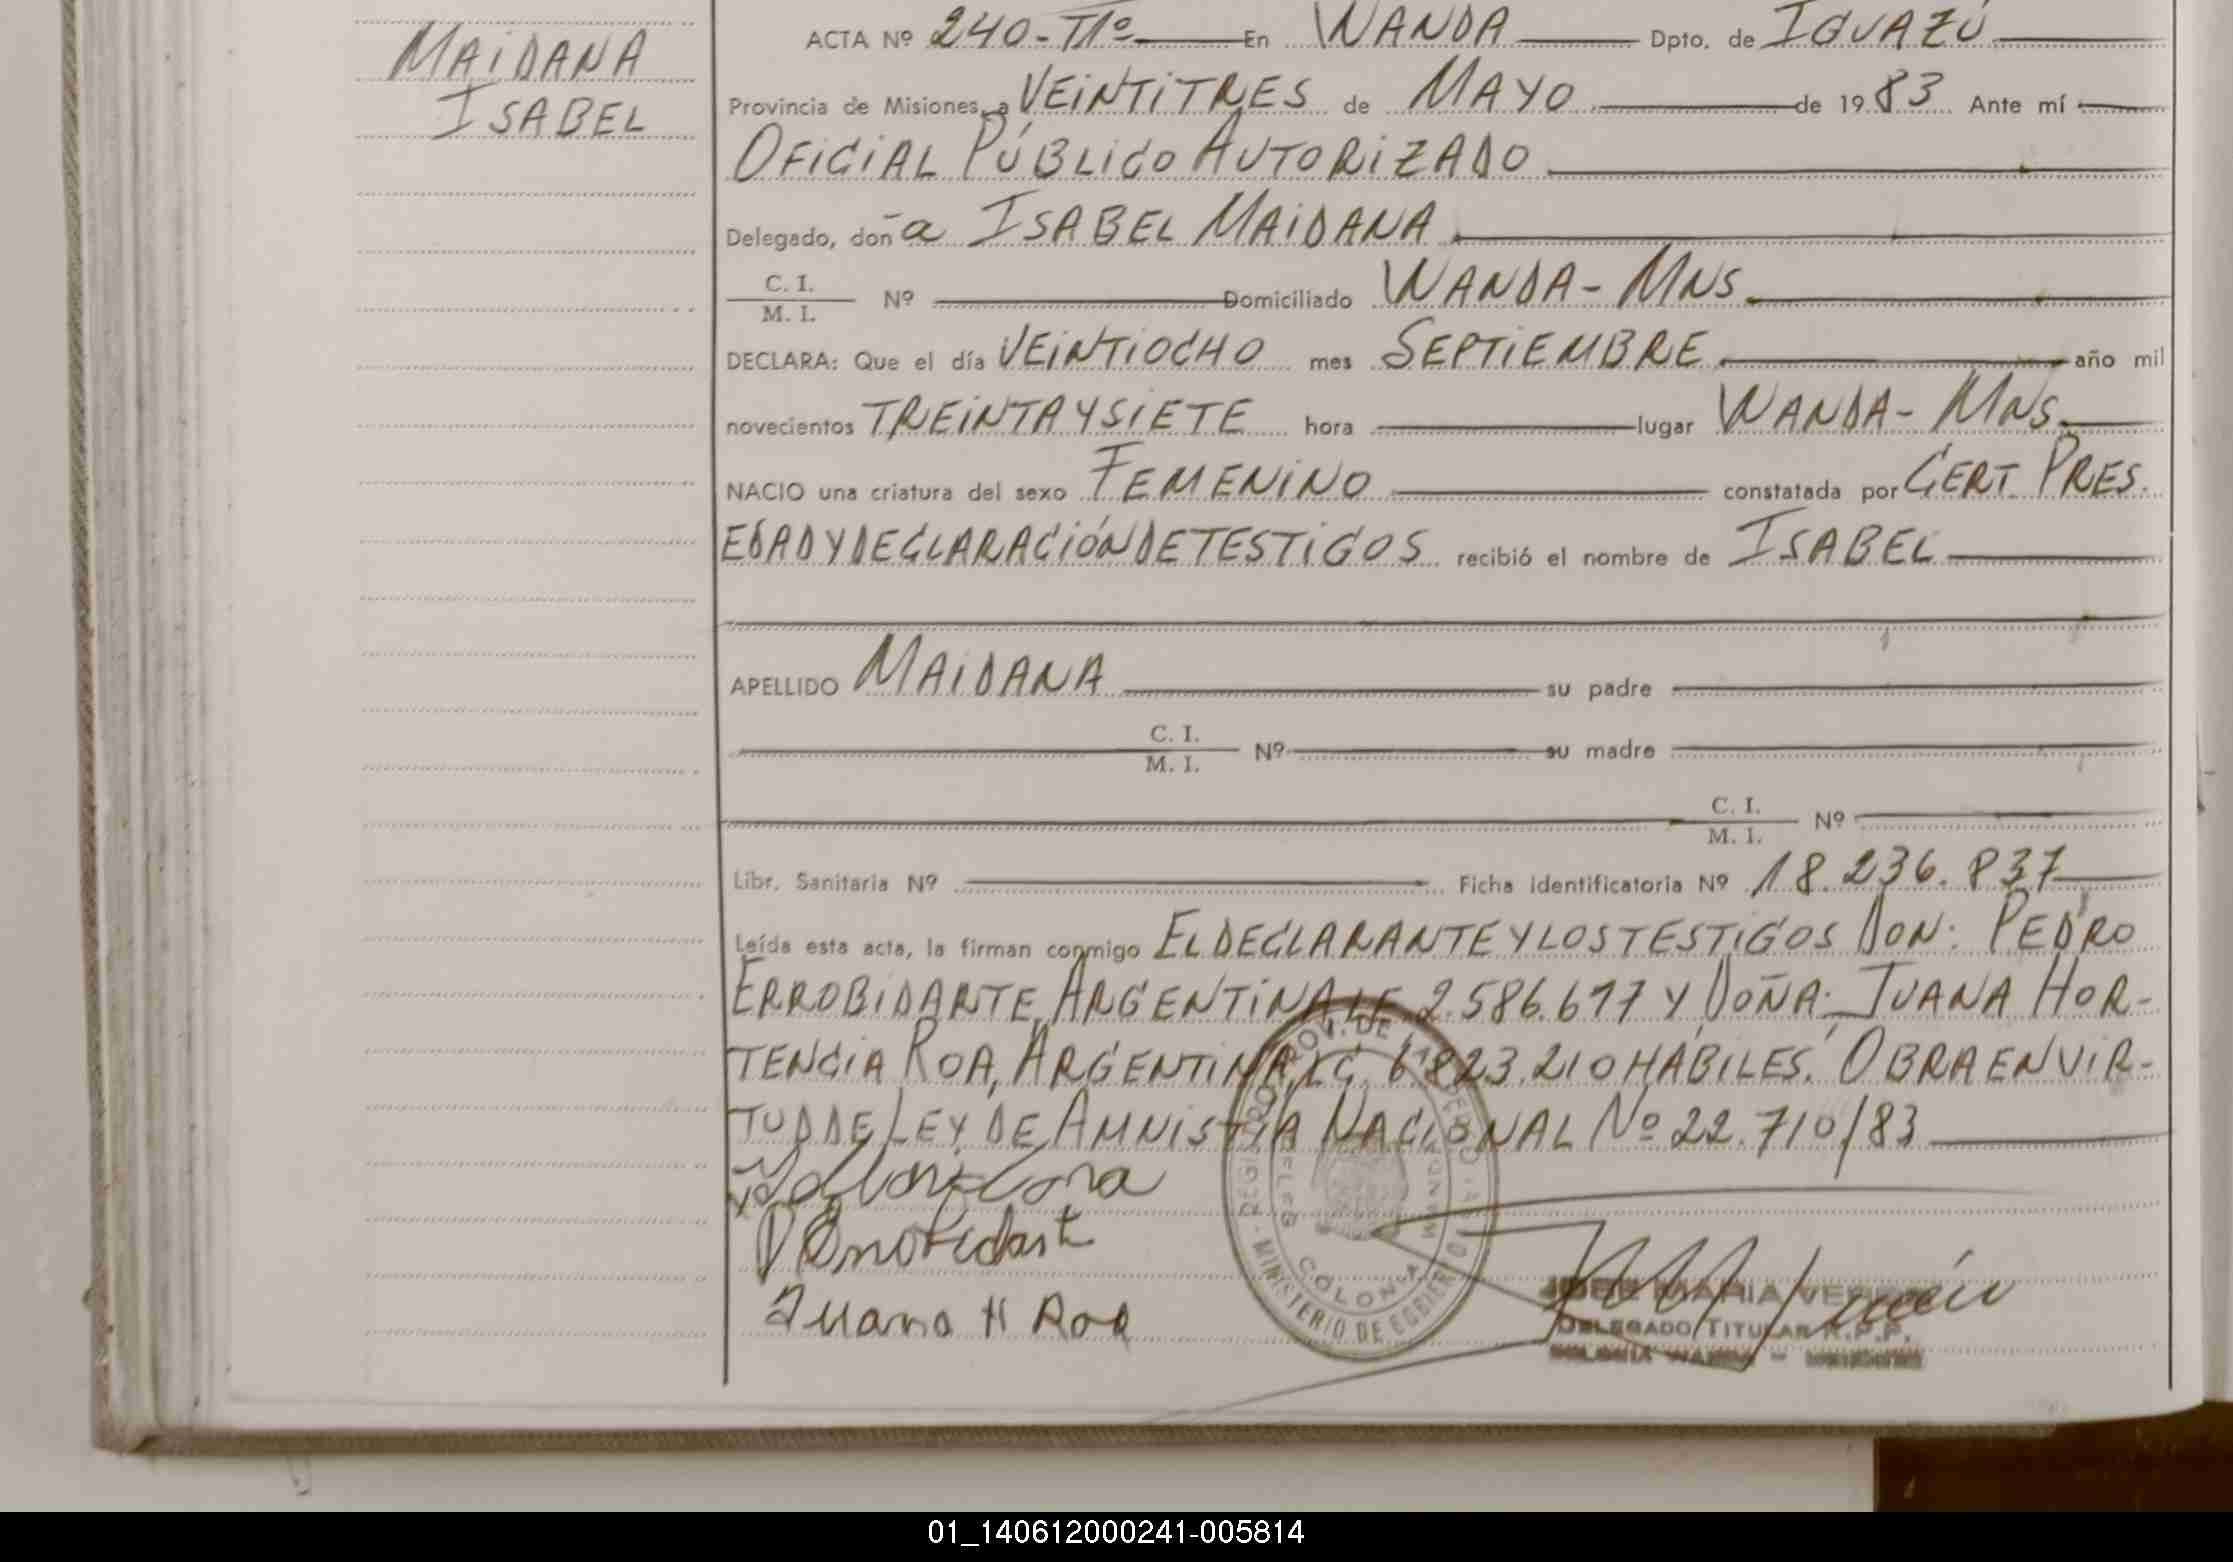 MAIDANA
ISABEL
ACTA Nº 240-Tlº En WANDA Dpto. de IGUAZÚ
Provincia de Misiones, a VEINTITRES de MAYO de 1983 Ante mí
OFICIAL PÚBLICO AUTORIZADO
Delegado, doña ISABEL MAIDANA
C. I.
M. I. Nº Domiciliado WANDA - MNS
DECLARA: Que el día VEINTIOCHO mes SEPTIEMBRE año mil
novecientos TREINTA Y SIETE hora lugar WANDA - MNS.
NACIO una criatura del sexo FEMENINO constatada por CERT. PRES.
EDAD Y DECLARACIÓN DE TESTIGOS recibió el nombre de ISABEL
APELLIDO MAIDANA su padre
C. I.
M. I. Nº su madre
C. I.
M. I. Nº
Libr. Sanitaria Nº Ficha Identificatoria Nº 18.236.837
Leída esta acta, la firman conmigo EL DECLARANTE Y LOS TESTIGOS DON: PEDRO
ERROBIDARTE, ARGENTINA LE 2.586.677 Y DOÑA: JUANA HOR-
TENCIA ROA, ARGENTINA, LC. 6.823.210 HÁBILES. OBRA EN VIR-
TUD DE LEY DE AMNISTÍA NACIONAL Nº 22.710/83
Juana H Roa
MINISTERIO DE GOBIERNO
COLONIA
JOSE MARIA
DELEGADO TITULAR R.P.P.
COLONIA WANDA - MISIONES
01_140612000241-005814